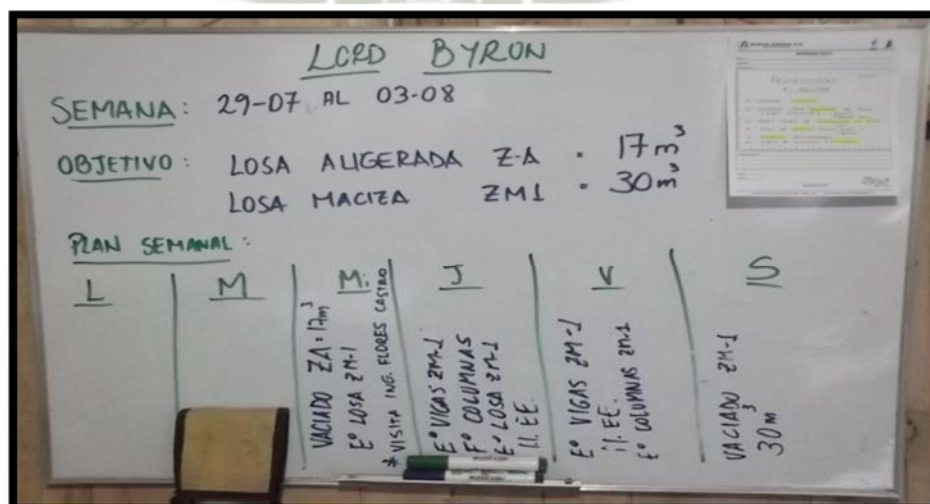 LORD BYRON
SEMANA: 29-07 AL 03-08
OBJETIVO: LOSA ALIGERADA Z-A · 17m³
LOSA MACIZA ZM1 · 30m³
PLAN SEMANAL:
L
M
Mi
VACIADO ZA=17m³
E° LOSA ZM-1
* VISITA ING. FLORES CASTRO
J
E° VIGAS ZM-1
F° COLUMNAS
E° LOSA ZM-1
II.EE.
V
E° VIGAS ZM-1
II.EE.
E° COLUMNAS ZM-1
S
VACIADO ZM-1
30m³